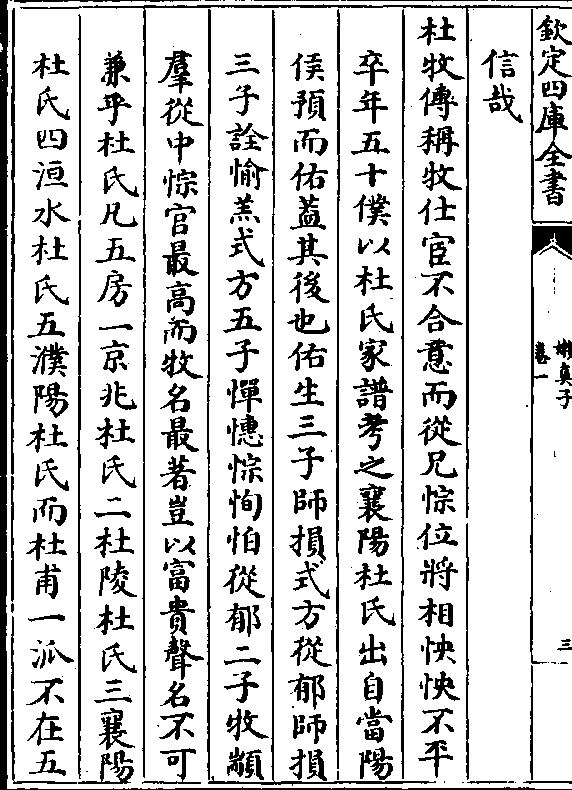 欽定四庫全書
嬾真子
卷一
三
信哉
杜牧傳稱牧仕宦不合意而從兄悰位將相怏怏不平
卒年五十僕以杜氏家譜考之襄陽杜氏出自當陽
侯預而佑葢其後也佑生三子師損式方從郁師損
三子詮愉羔式方五子惲憓悰恂怕從郁二子牧顗
羣從中悰官最高而牧名最著豈以富貴聲名不可
兼乎杜氏凡五房一京兆杜氏二杜陵杜氏三襄陽
杜氏四洹水杜氏五濮陽杜氏而杜甫一派不在五